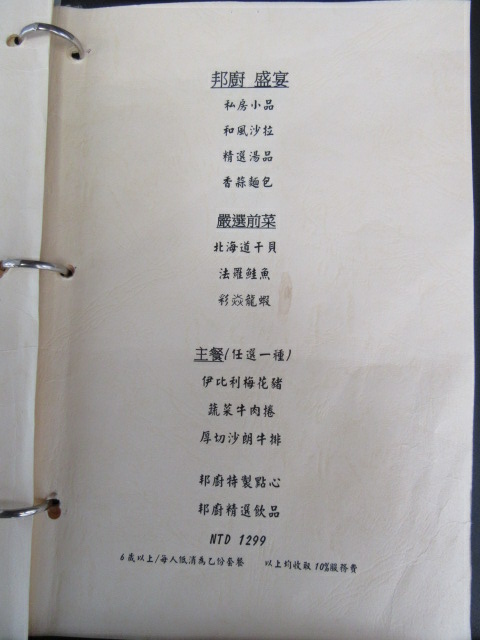 邦廚 盛宴
私房小品
和風沙拉
精選湯品
香蒜麵包
嚴選前菜
北海道干貝
法羅鮭魚
彩焱龍蝦
主餐(任選一種)
伊比利梅花豬
蔬菜牛肉捲
厚切沙朗牛排
邦廚特製點心
邦廚精選飲品
NTD 1299
6歲以上/每人低消為乙份套餐 以上均收取10%服務費